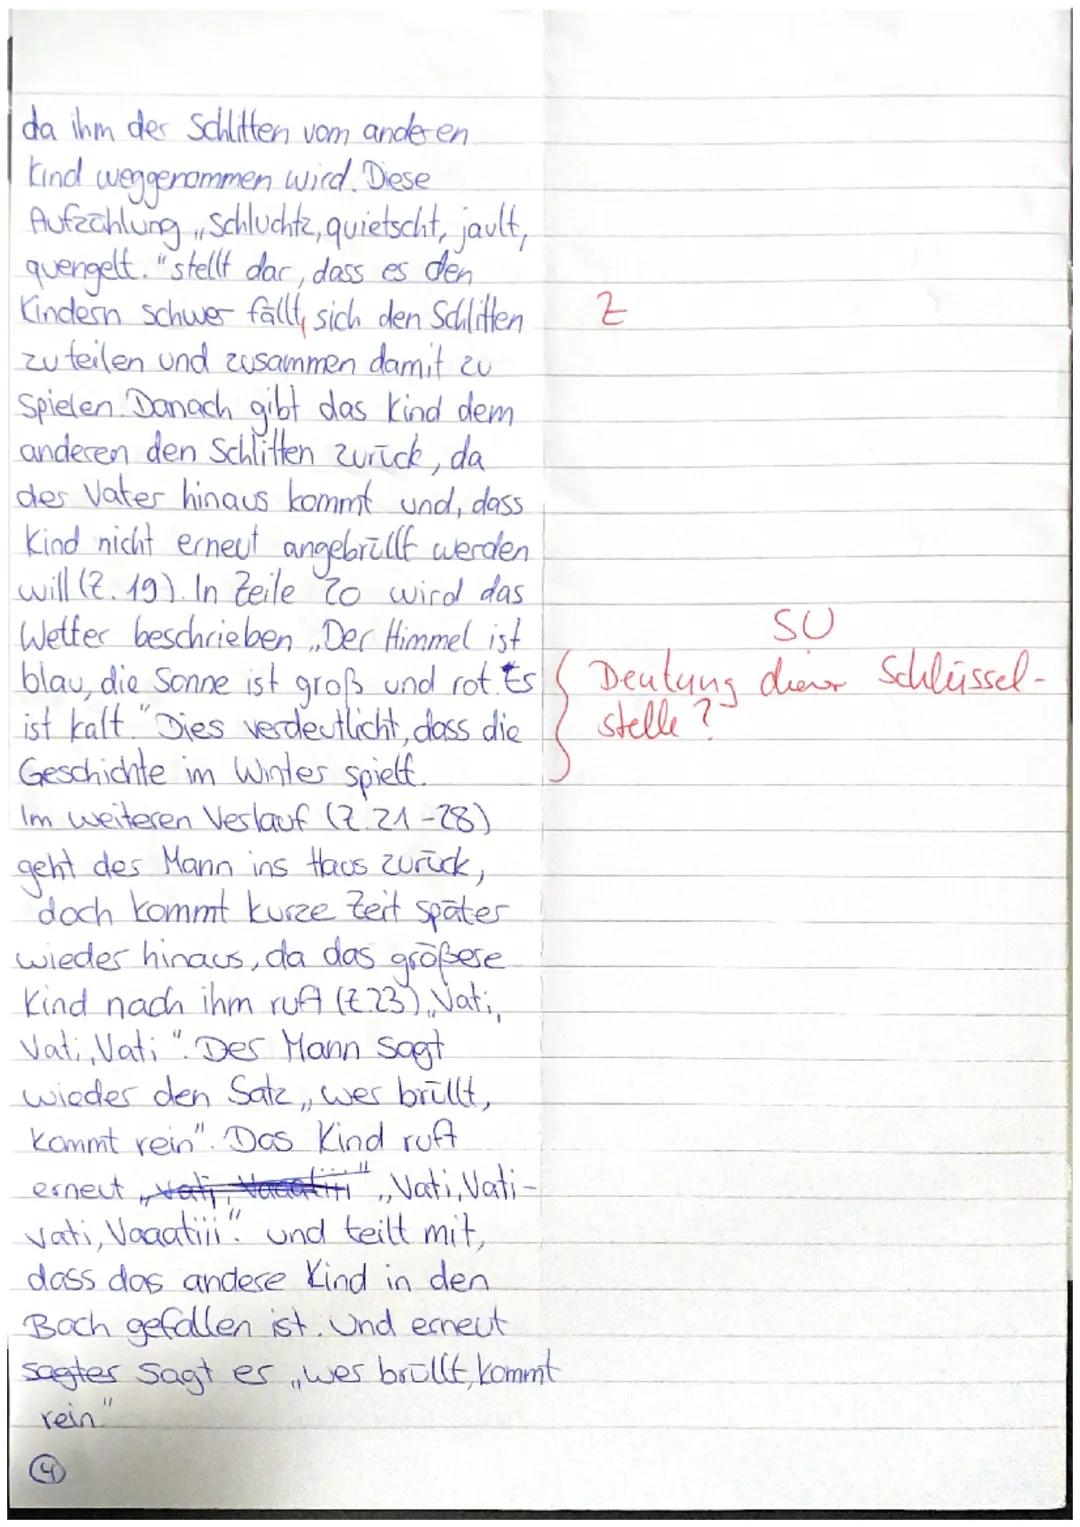 da ihm der Schlitten vom anderen
Kind weggenommen wird. Diese
Aufzählung „Schluchtz, quietscht, jault,
quengelt." stellt dar, dass es den
Kindern schwer fällt, sich den Schlitten
Z
zu teilen und zusammen damit zu
Spielen. Danach gibt das Kind dem
anderen den Schlitten zurück, da
der Vater hinaus kommt und, dass
Kind nicht erneut angebrüllt werden
will (Z. 19). In Zeile 20 wird das
Wetter beschrieben „Der Himmel ist
SU
blau, die Sonne ist groß und rot. Es
Deutung dieser Schlüssel-
ist kalt." Dies verdeutlicht, dass die
stelle?
Geschichte im Winter spielt.
Im weiteren Verlauf (Z. 21-28)
geht der Mann ins Haus zurück,
doch kommt kurze Zeit später
wieder hinaus, da das größere
Kind nach ihm ruft (Z.23) „Vati,
Vati, Vati". Der Mann sagt
wieder den Satz „wer brüllt,
kommt rein". Das Kind ruft
erneut „Vati, Vaaatiiii" „Vati, Vati-
vati, Vaaatiii". und teilt mit,
dass das andere Kind in den
Bach gefallen ist. Und erneut
sagter Sagt er „wer brüllt, kommt
rein."
4